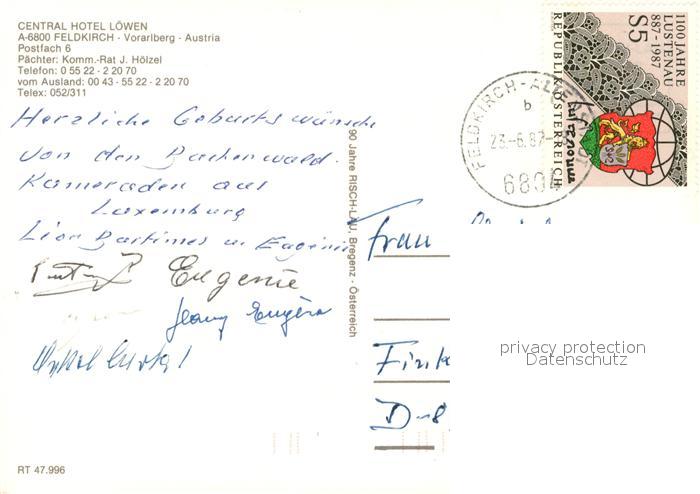 CENTRAL HOTEL LÖWEN
A-6800 FELDKIRCH - Vorarlberg - Austria
Postfach 6
Pächter: Komm.-Rat J. Hölzel
Telefon: 0 55 22 - 2 20 70
vom Ausland: 00 43 - 55 22 - 2 20 70
Telex: 052/311
1100 JAHRE
LUSTENAU
887-1987
S5
REPUBLIK ÖSTERREICH
FELDKIRCH
b
6800
Herzliche Geburtswünsche
von den Buchenwald.
Kameraden aus
Luxemburg
Eugenie
90 Jahre RISCH-LAU, Bregenz - Österreich
Frau
D-8
privacy protection
Datenschutz
RT 47.996